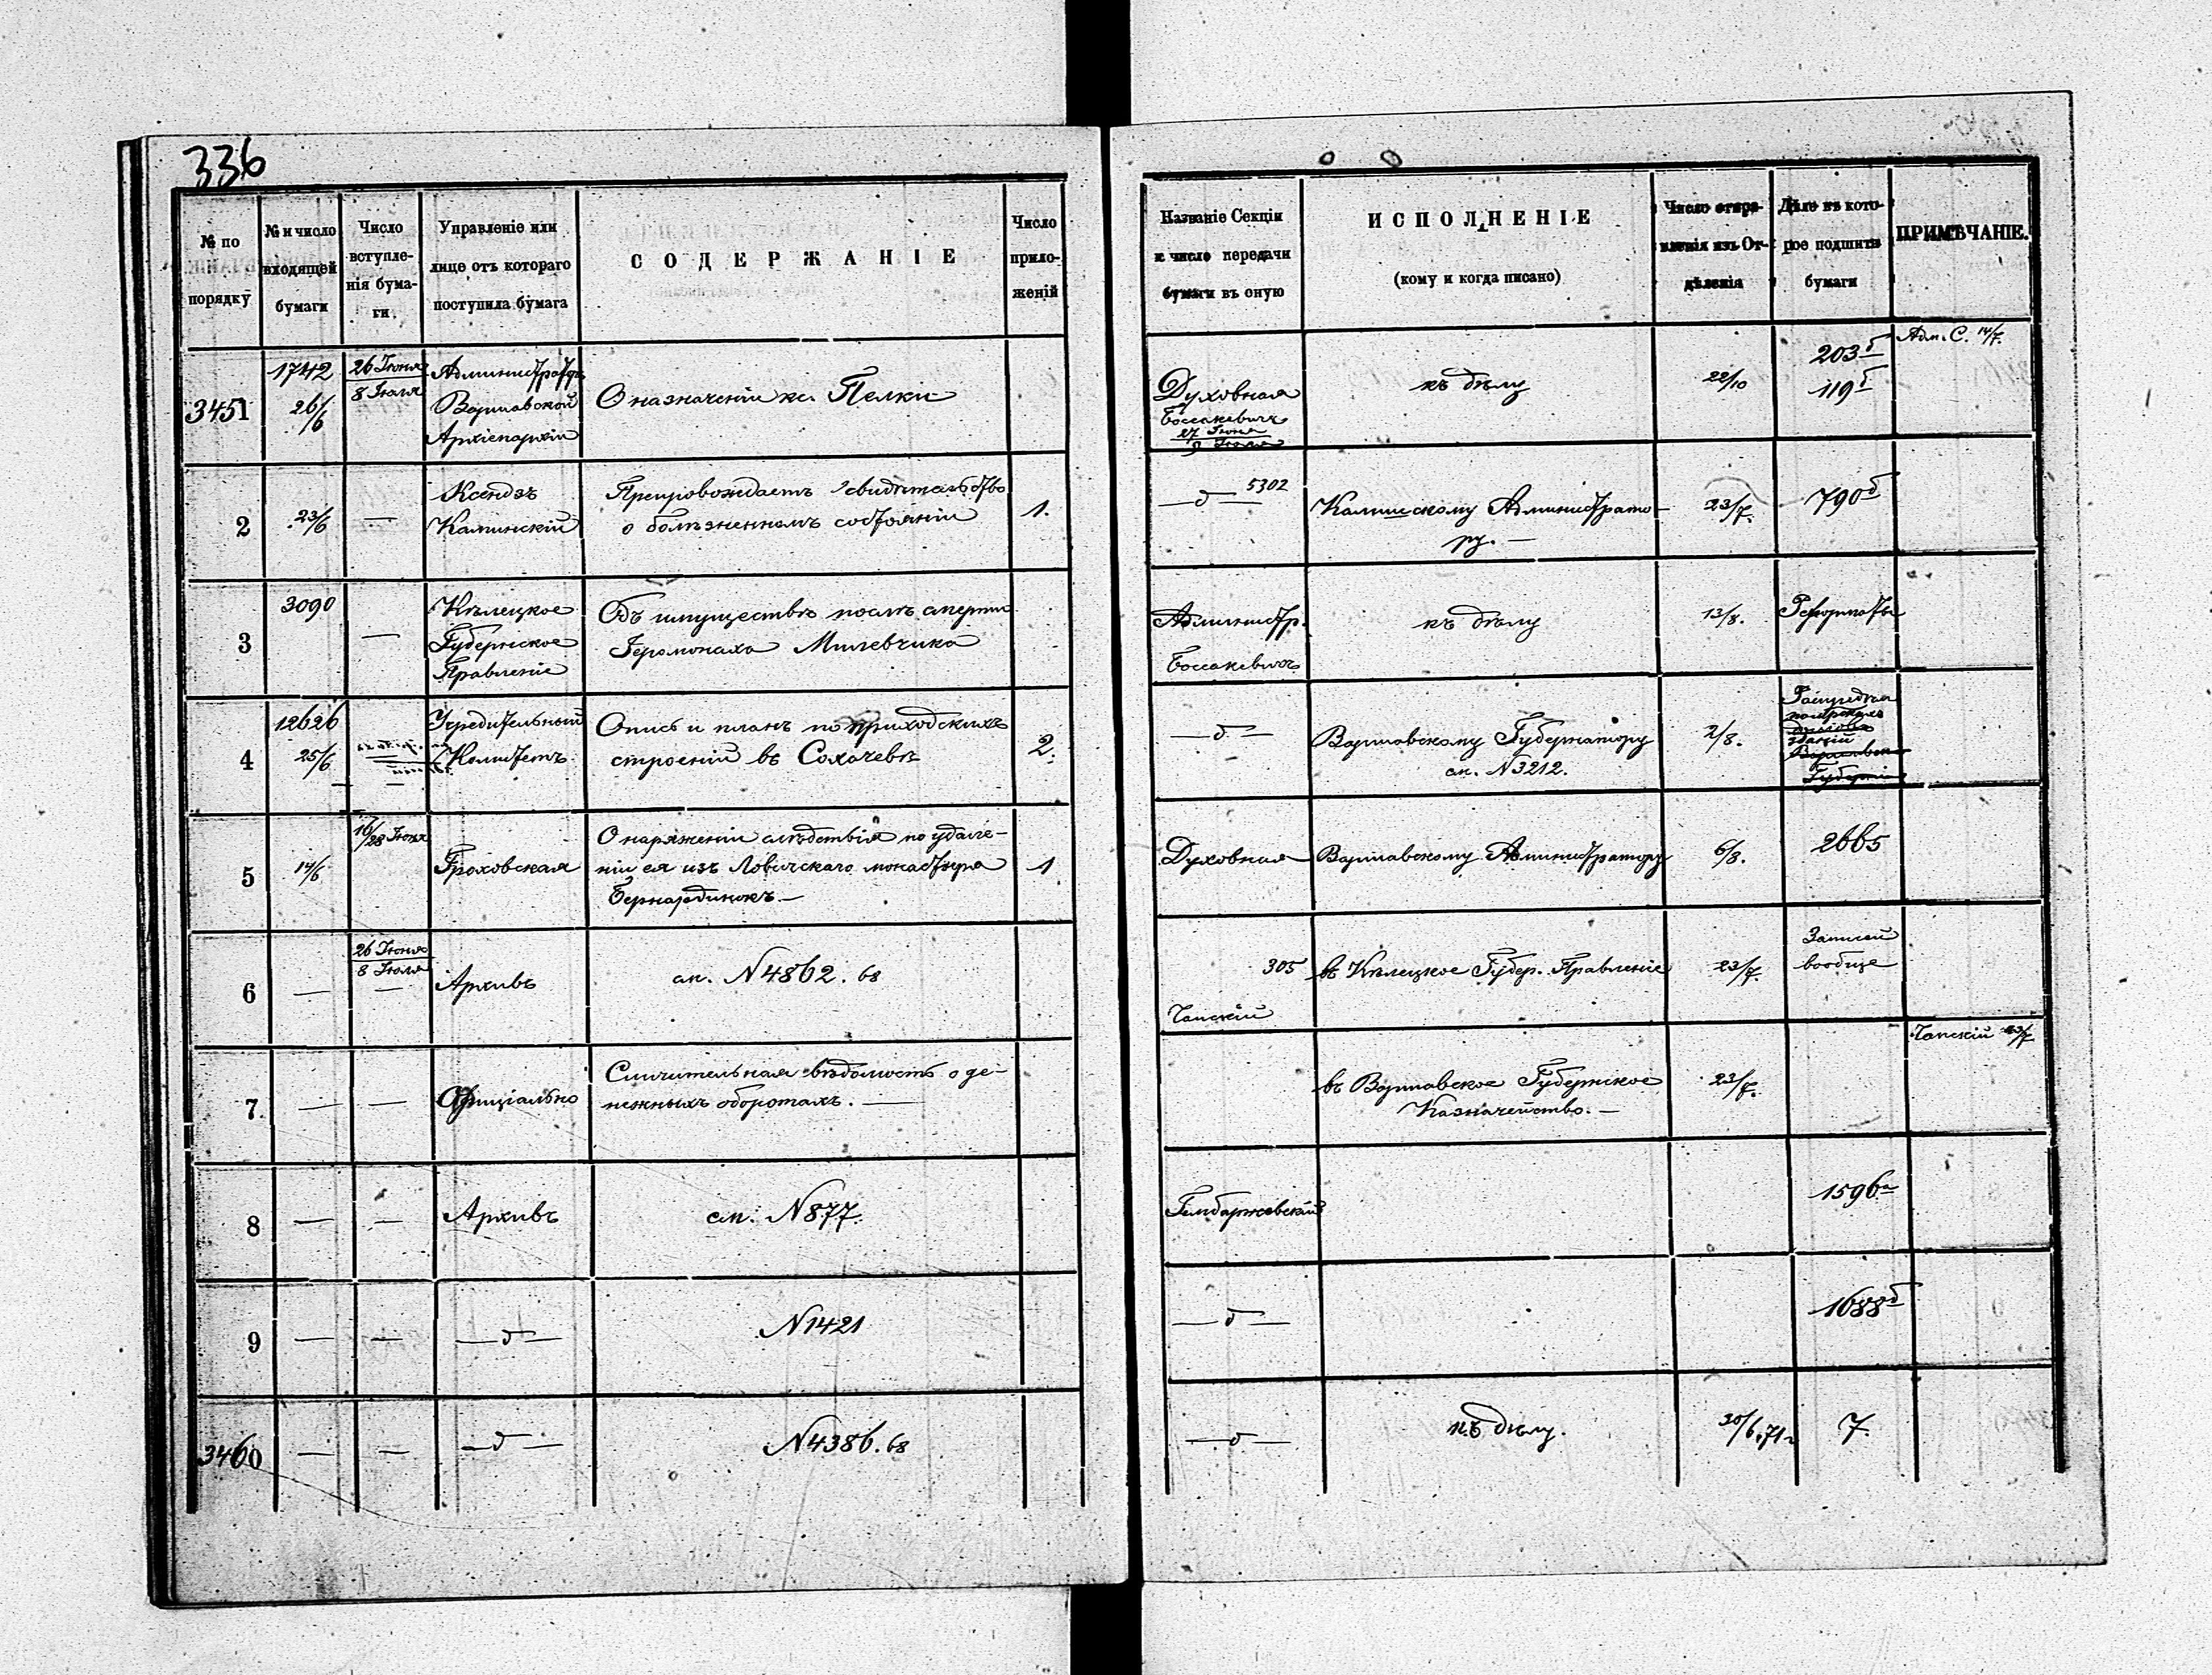 336
№ по порядку
№ и число входящей бумаги
Число вступле-нія бума-ги.
Управленіе или лице отъ котораго поступила бумага
СОДЕРЖАНІЕ
Число прило-женій
Названіе Секціи и число передачи бумаги въ оную
ИСПОЛНЕНІЕ
(кому и когда писано)
Число отпра-вленія изъ От-дѣленія
Дѣло въ кото-рое подшита бумаги
ПРИМѢЧАНІЕ.
3451
17442
26/6
26 Іюня
8 Іюля
Администраторъ
Варшавской
Архіепархіи
О назначеніи кс. Пелки
Духовная
Боссакевичъ
27 Іюня
9 Іюля
къ дѣлу
22/10
203б
119б
Адм. С. 14/7.
2
23/6
—
Ксендзъ
Каминскій
Препровождаетъ свидѣтельство
о болѣзненномъ состояніи
1.
—д—
5302
Калишскому Администрато-
ру. —
23/7.
790б
3
3090
—
Кѣлецкое
Губернское
Правленіе
Объ имуществѣ послѣ смерти
Іеромонаха Милевчика
Администр.
Боссакевичъ
къ дѣлу
13/8.
Реформаты
4
12626
25/6
Учредительный
Комитетъ
Опись и планъ по приходскихъ
строеній въ Сохачевѣ
2.
—д—
Варшавскому Губернатору
см. N 3212.
2/8.
зданій
Губерніи
5
14/6
16/28 Іюня
Гроховская
О наряженіи слѣдствія по удале-
ніи ея изъ Ловичскаго монастыря
Бернардинокъ. —
1
Духовная
Варшавскому Администратору
6/8.
2665
6
—
26 Іюня
8 Іюля
—
Архивъ
см. N 4862. 68
305
Чапскій
въ Кѣлецкое Губер. Правленіе
23/7.
Записей
вообще
7
—
—
Офиціально
Сличительная вѣдомость о де-
нежныхъ оборотахъ. —
въ Варшавское Губернское
Казначейство. —
23/7.
Чапскій 23/7
8
—
—
Архивъ
см. N 877.
Гембаржевскій
1596а
9
—
—
—д—
N 1421
—д—
1688б
3460
—
—
—д—
N 4386. 68
—д—
къ дѣлу.
30/6.71г
7.